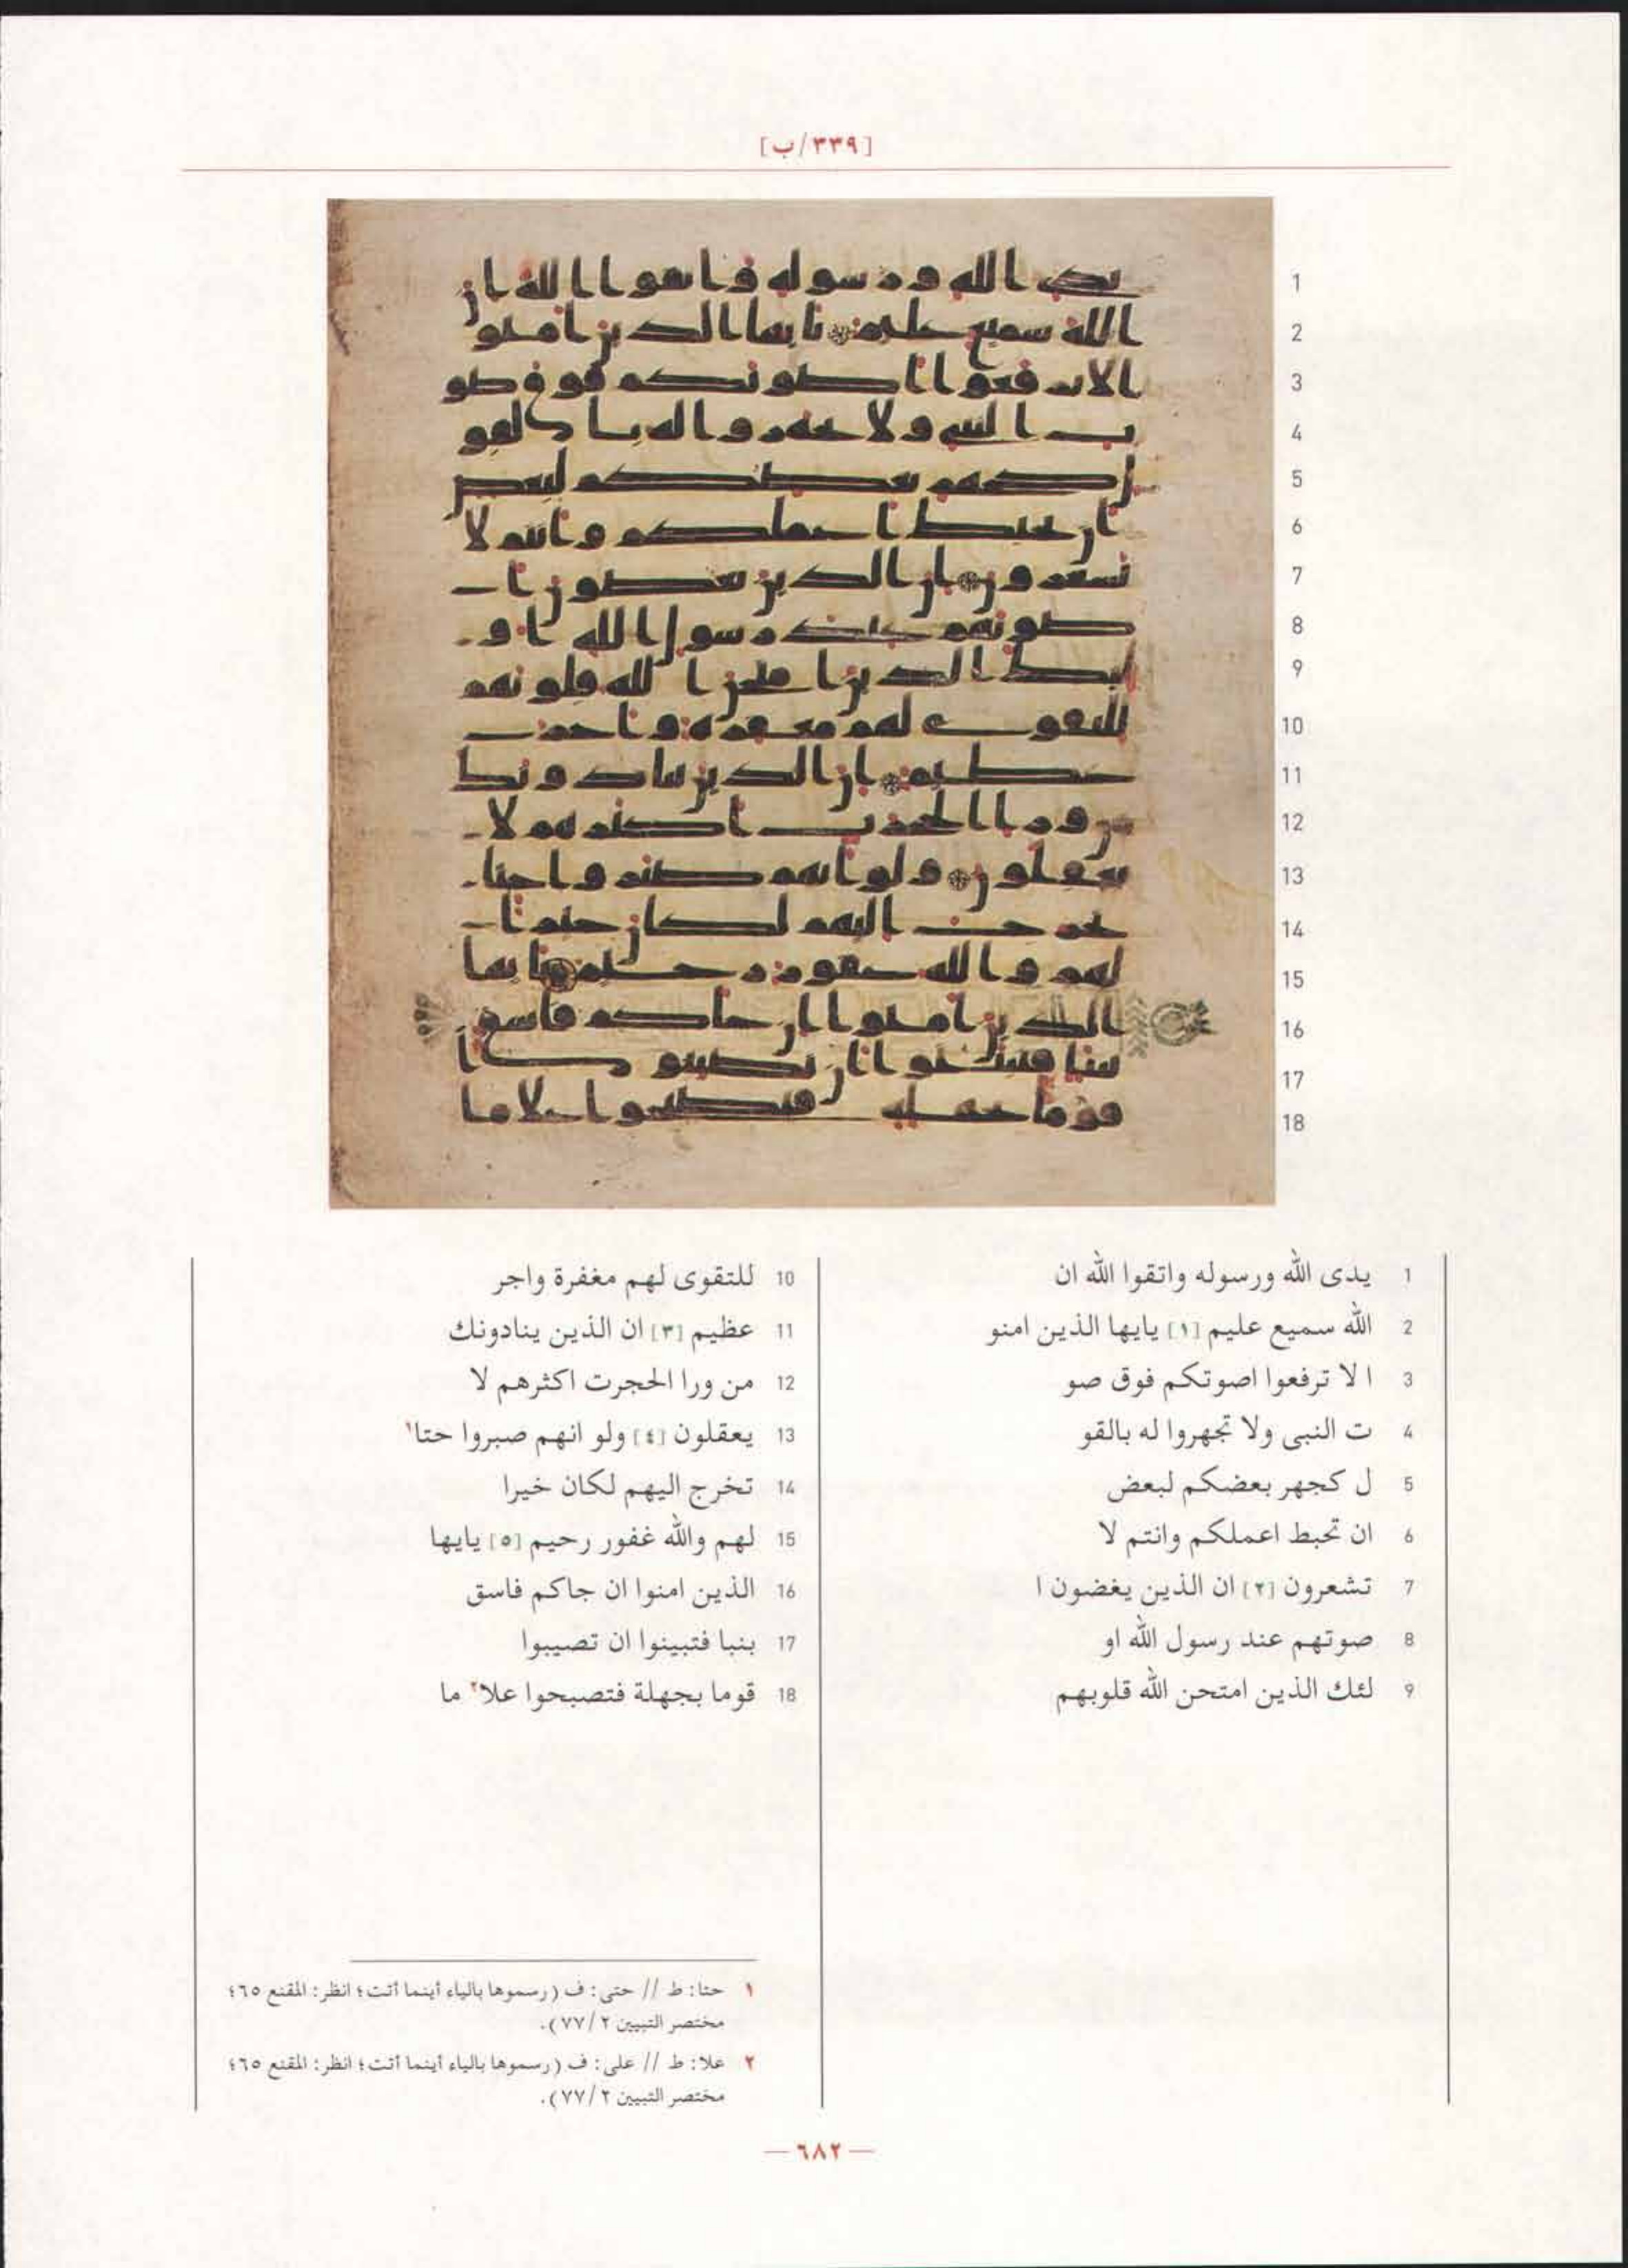 [٣٣٩/ب]
1 يدى الله ورسوله واتقوا الله ان
2 الله سميع عليم [١] يايها الذين امنو
3 ا لا ترفعوا اصوتكم فوق صو
4 ت النبى ولا تجهروا له بالقو
5 ل كجهر بعضكم لبعض
6 ان تحبط اعملكم وانتم لا
7 تشعرون [٢] ان الذين يغضون ا
8 صوتهم عند رسول الله او
9 لئك الذين امتحن الله قلوبهم
10 للتقوى لهم مغفرة واجر
11 عظيم [٣] ان الذين ينادونك
12 من ورا الحجرت اكثرهم لا
13 يعقلون [٤] ولو انهم صبروا حتا١
14 تخرج اليهم لكان خيرا
15 لهم والله غفور رحيم [٥] يايها
16 الذين امنوا ان جاكم فاسق
17 بنبا فتبينوا ان تصيبوا
18 قوما بجهلة فتصبحوا علا٢ ما
١ حتا: ط // حتى: ف (رسموها بالياء أينما أتت؛ انظر: المقنع ٦٥؛
مختصر التبيين ٢/٧٧).
٢ علا: ط // على: ف (رسموها بالياء أينما أتت؛ انظر: المقنع ٦٥؛
مختصر التبيين ٢/٧٧).
— ٦٨٢ —